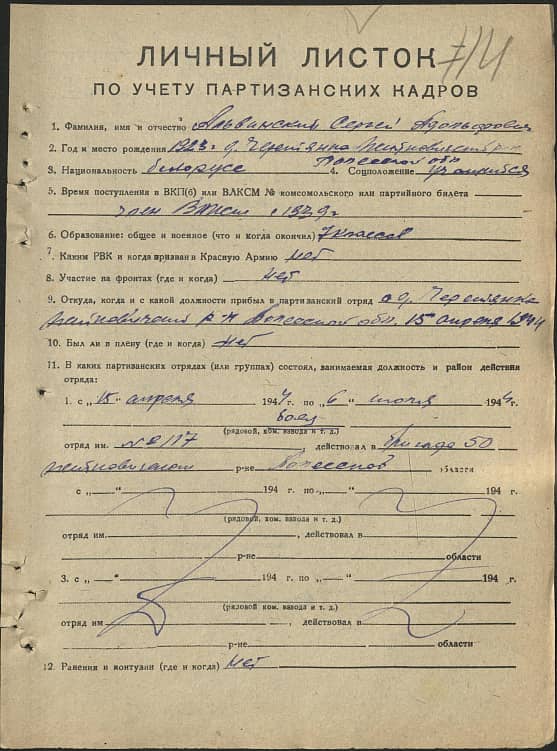 7/14
ЛИЧНЫЙ ЛИСТОК
ПО УЧЕТУ ПАРТИЗАНСКИХ КАДРОВ
1. Фамилия, имя и отчество Альвинский Сергей Адольфович
2. Год и место рождения 1923 г д. Черетянка Житковичский р-н
Полесской обл
3. Национальность белорусс 4. Соцположение учащийся
5. Время поступления в ВКП(б) или ВЛКСМ № комсомольского или партийного билета
член ВЛКСМ с 1939 г
6. Образование: общее и военное (что и когда окончил) 7 классов
7. Каким РВК и когда призван в Красную Армию нет
8. Участие на фронтах (где и когда) нет
9. Откуда, когда и с какой должности прибыл в партизанский отряд с д. Черетянка
Житковичский р-н Полесской обл. 15 апреля 1944
10. Был ли в плену (где и когда) нет
11. В каких партизанских отрядах (или группах) состоял, занимаемая должность и район действия
отряда:
1. с „15“ апреля 1944 г по „6“ июля 1944 г.
боец
(рядовой, ком. взвода и т. д.)
отряд им. № 117, действовал в бригаде 50
Житковичском р-не Полесской области
с „—“ 194 г. по „—“ 194 г.
(рядовой, ком. взвода и т. д.)
отряд им. , действовал в
р-не области
3. с „—“ 194 г. по „—“ 194 г.
(рядовой ком. взвода и т. д.)
отряд им , действовал в
р-не области
12. Ранения и контузии (где и когда) нет